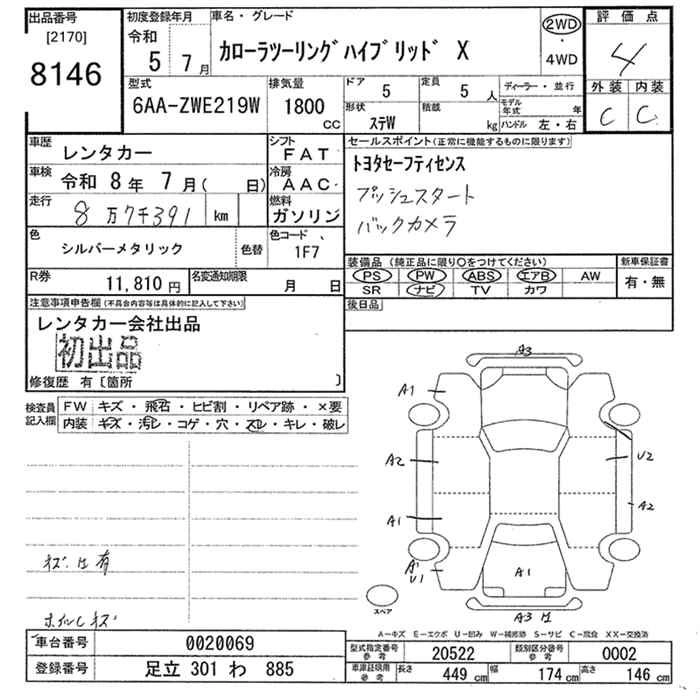 出品番号
[2170]
8146
初度登録年月
令和
5 7月
車名・グレード
カローラツーリングハイブリッド X
2WD
・
4WD
評価点
4
外装 内装
C C
型式
6AA-ZWE219W
排気量
1800
CC
ドア
5
定員
5 人
形状
ステW
積載
kg
ディーラー・並行
モデル年式 年
ハンドル 左・右
車歴
レンタカー
シフト
FAT
車検
令和 8年 7月( 日)
冷房
AAC
走行
8万7千391 km
燃料
ガソリン
色
シルバーメタリック
色替
色コード、
1F7
R券
11,810円
名変通知期限
月 日
セールスポイント(正常に機能するものに限ります)
トヨタセーフティセンス
プッシュスタート
バックカメラ
装備品 (純正品に限り○をつけてください)
PS PW ABS エアB AW
SR ナビ TV カワ
新車保証書
有・無
後日品
注意事項申告欄(不具合内容等は具体的に記入して下さい)
レンタカー会社出品
初出品
修復歴 有〔箇所 〕
検査員記入欄
FW キズ・飛石・ヒビ割・リペア跡・×要
内装 キズ・汚レ・コゲ・穴・スレ・キレ・破レ
A3
A1
A2
U2
A2
A1
U1
A1
A3
スペア
ホイルキズ
A－キズ E－エクボ U－凹み W－補修跡 S－サビ C－腐食 XX－交換済
車台番号
0020069
登録番号
足立 301 わ 885
型式指定番号
参考
20522
類別区分番号
参考
0002
車庫証明用
参考
長さ
449 cm
幅
174 cm
高さ
146 cm